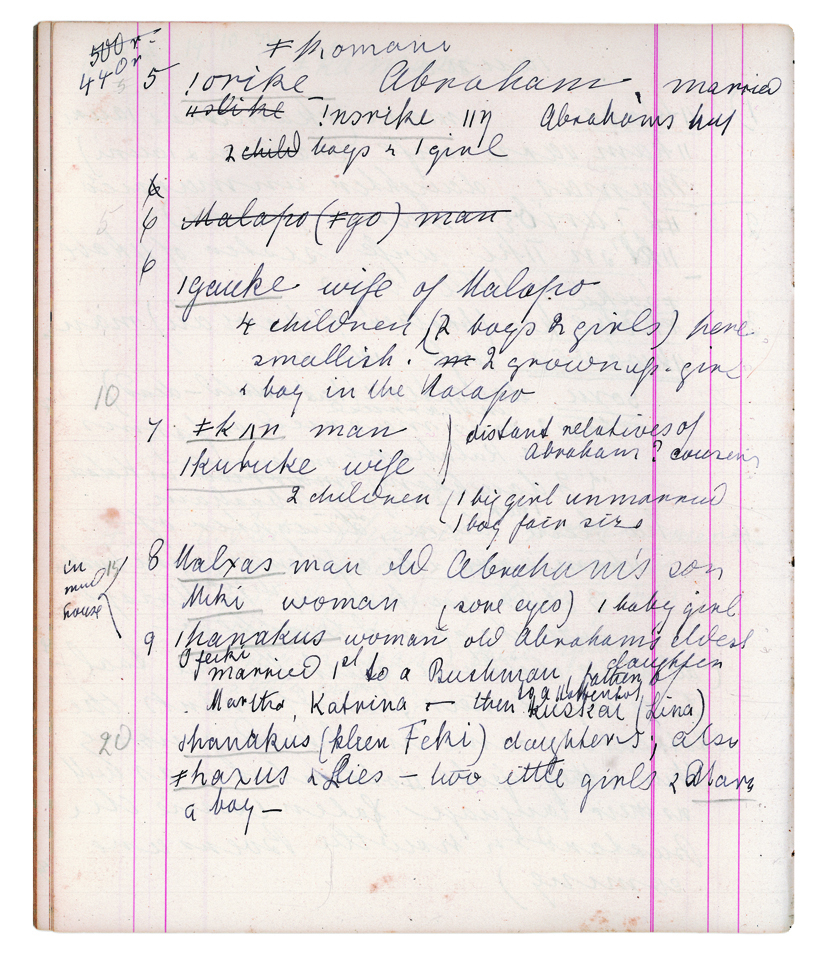 500 r
ǂ Khomani
440 r
5 !orike Abraham married
ǁslike !norike ǁŋ Abraham's hut
2 child boys & 1 girl
6
6 Malapo (ǂgo) man
6
ǀgauke wife of Malapo
4 children (2 boys 2 girls) here
smallish. 2 grown up. girl
& boy in the Malapo
10
7 ǂkǁn man distant relatives of
Abraham? cousins
ǀkuruke wife
2 children (1 big girl unmarried
1 boy fair size
in mud house
15
8 Malxas man old Abraham's son
Miki woman (sore eyes) 1 baby girl
9 ǀhanakus woman old Abraham's eldest
daughter
married 1st to a Bushman, father of
Martha, Katrina & then to a Hottentot (Lina)
20
ǀhanakus (kleen Feki) daughters, also
ǂhaxus & Lies – two little girls &
a boy –